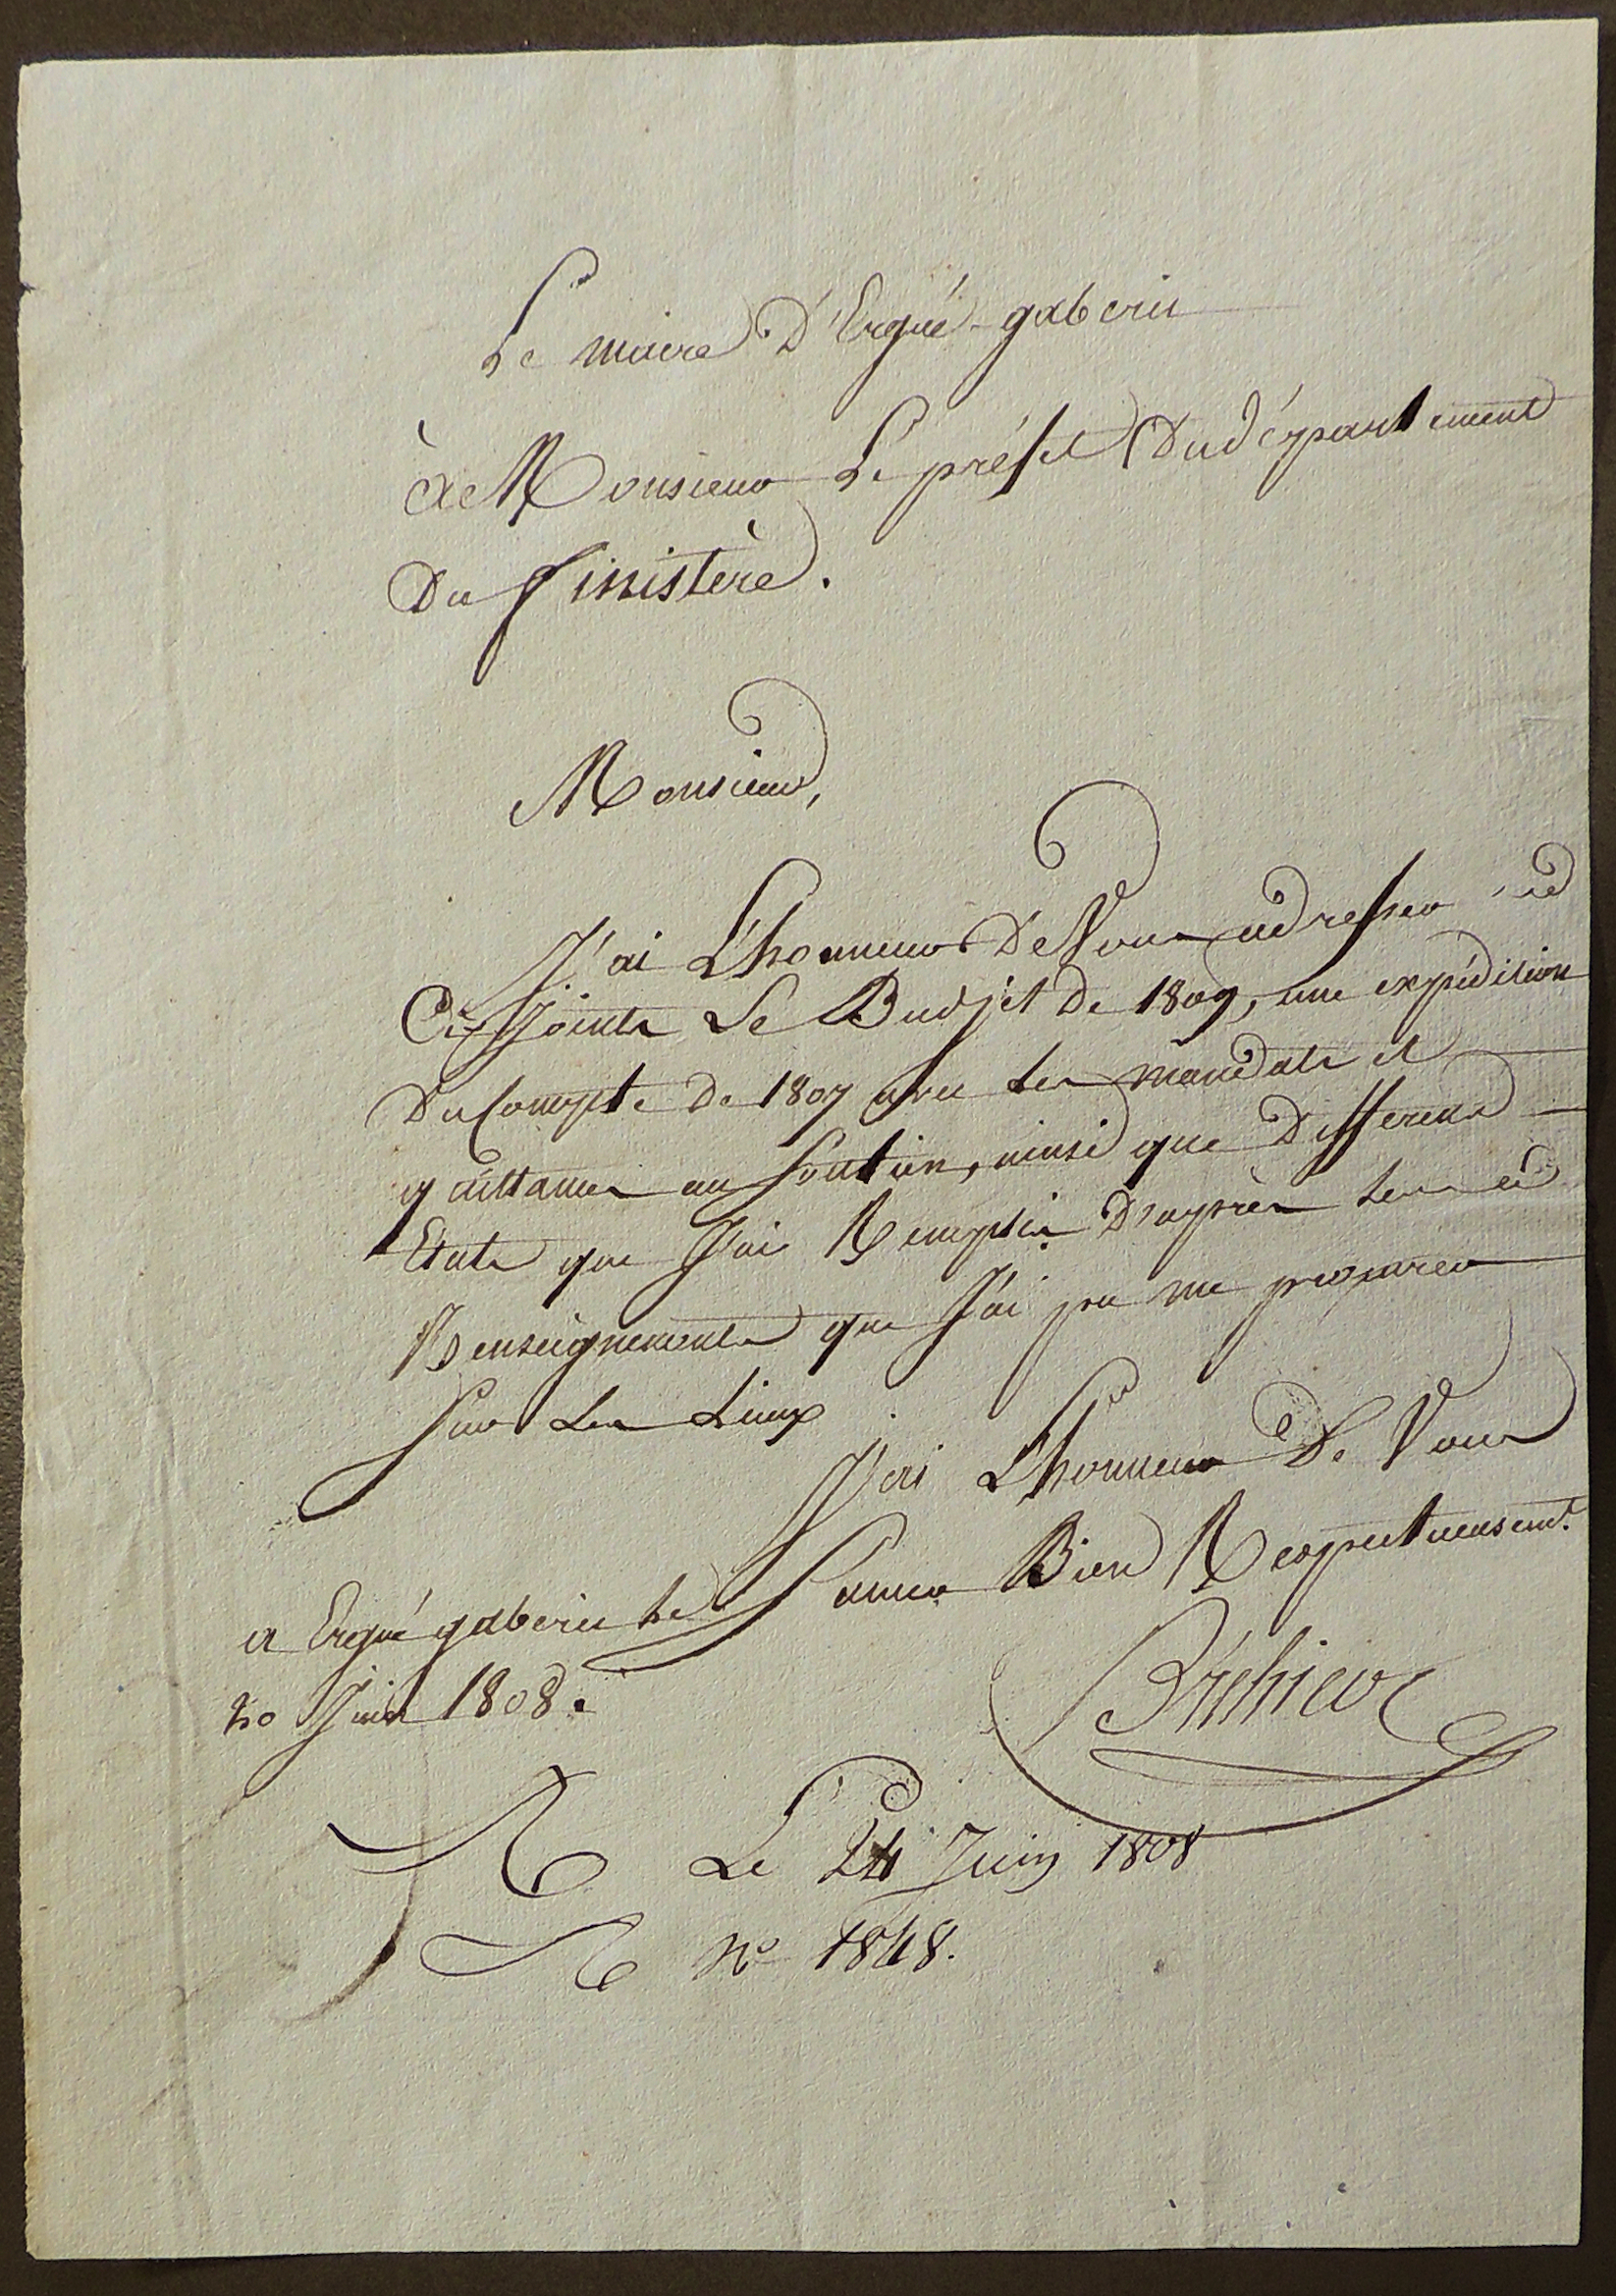 Le maire D'Ergué-gabéric
à Monsieur Le préfet Du département
Du Finistère.
Monsieur,
J'ai L'honneur De Vous adresser
Ci Joints Le Budjet De 1809, une expédition
Du Compte De 1807 avec Les mandats et
quittances au Soutien, ainsi que Differens
Etats que J'ai Remplis D'après Les
Renseignements que J'ai pu me procurer
Sur Les Lieux
J'ai L'honneur De Vous
Saluer Bien Respectueusemt.
a Ergué gabéric Le
20 Juin 1808.
R Le 24 Juin 1808
R No 1848.